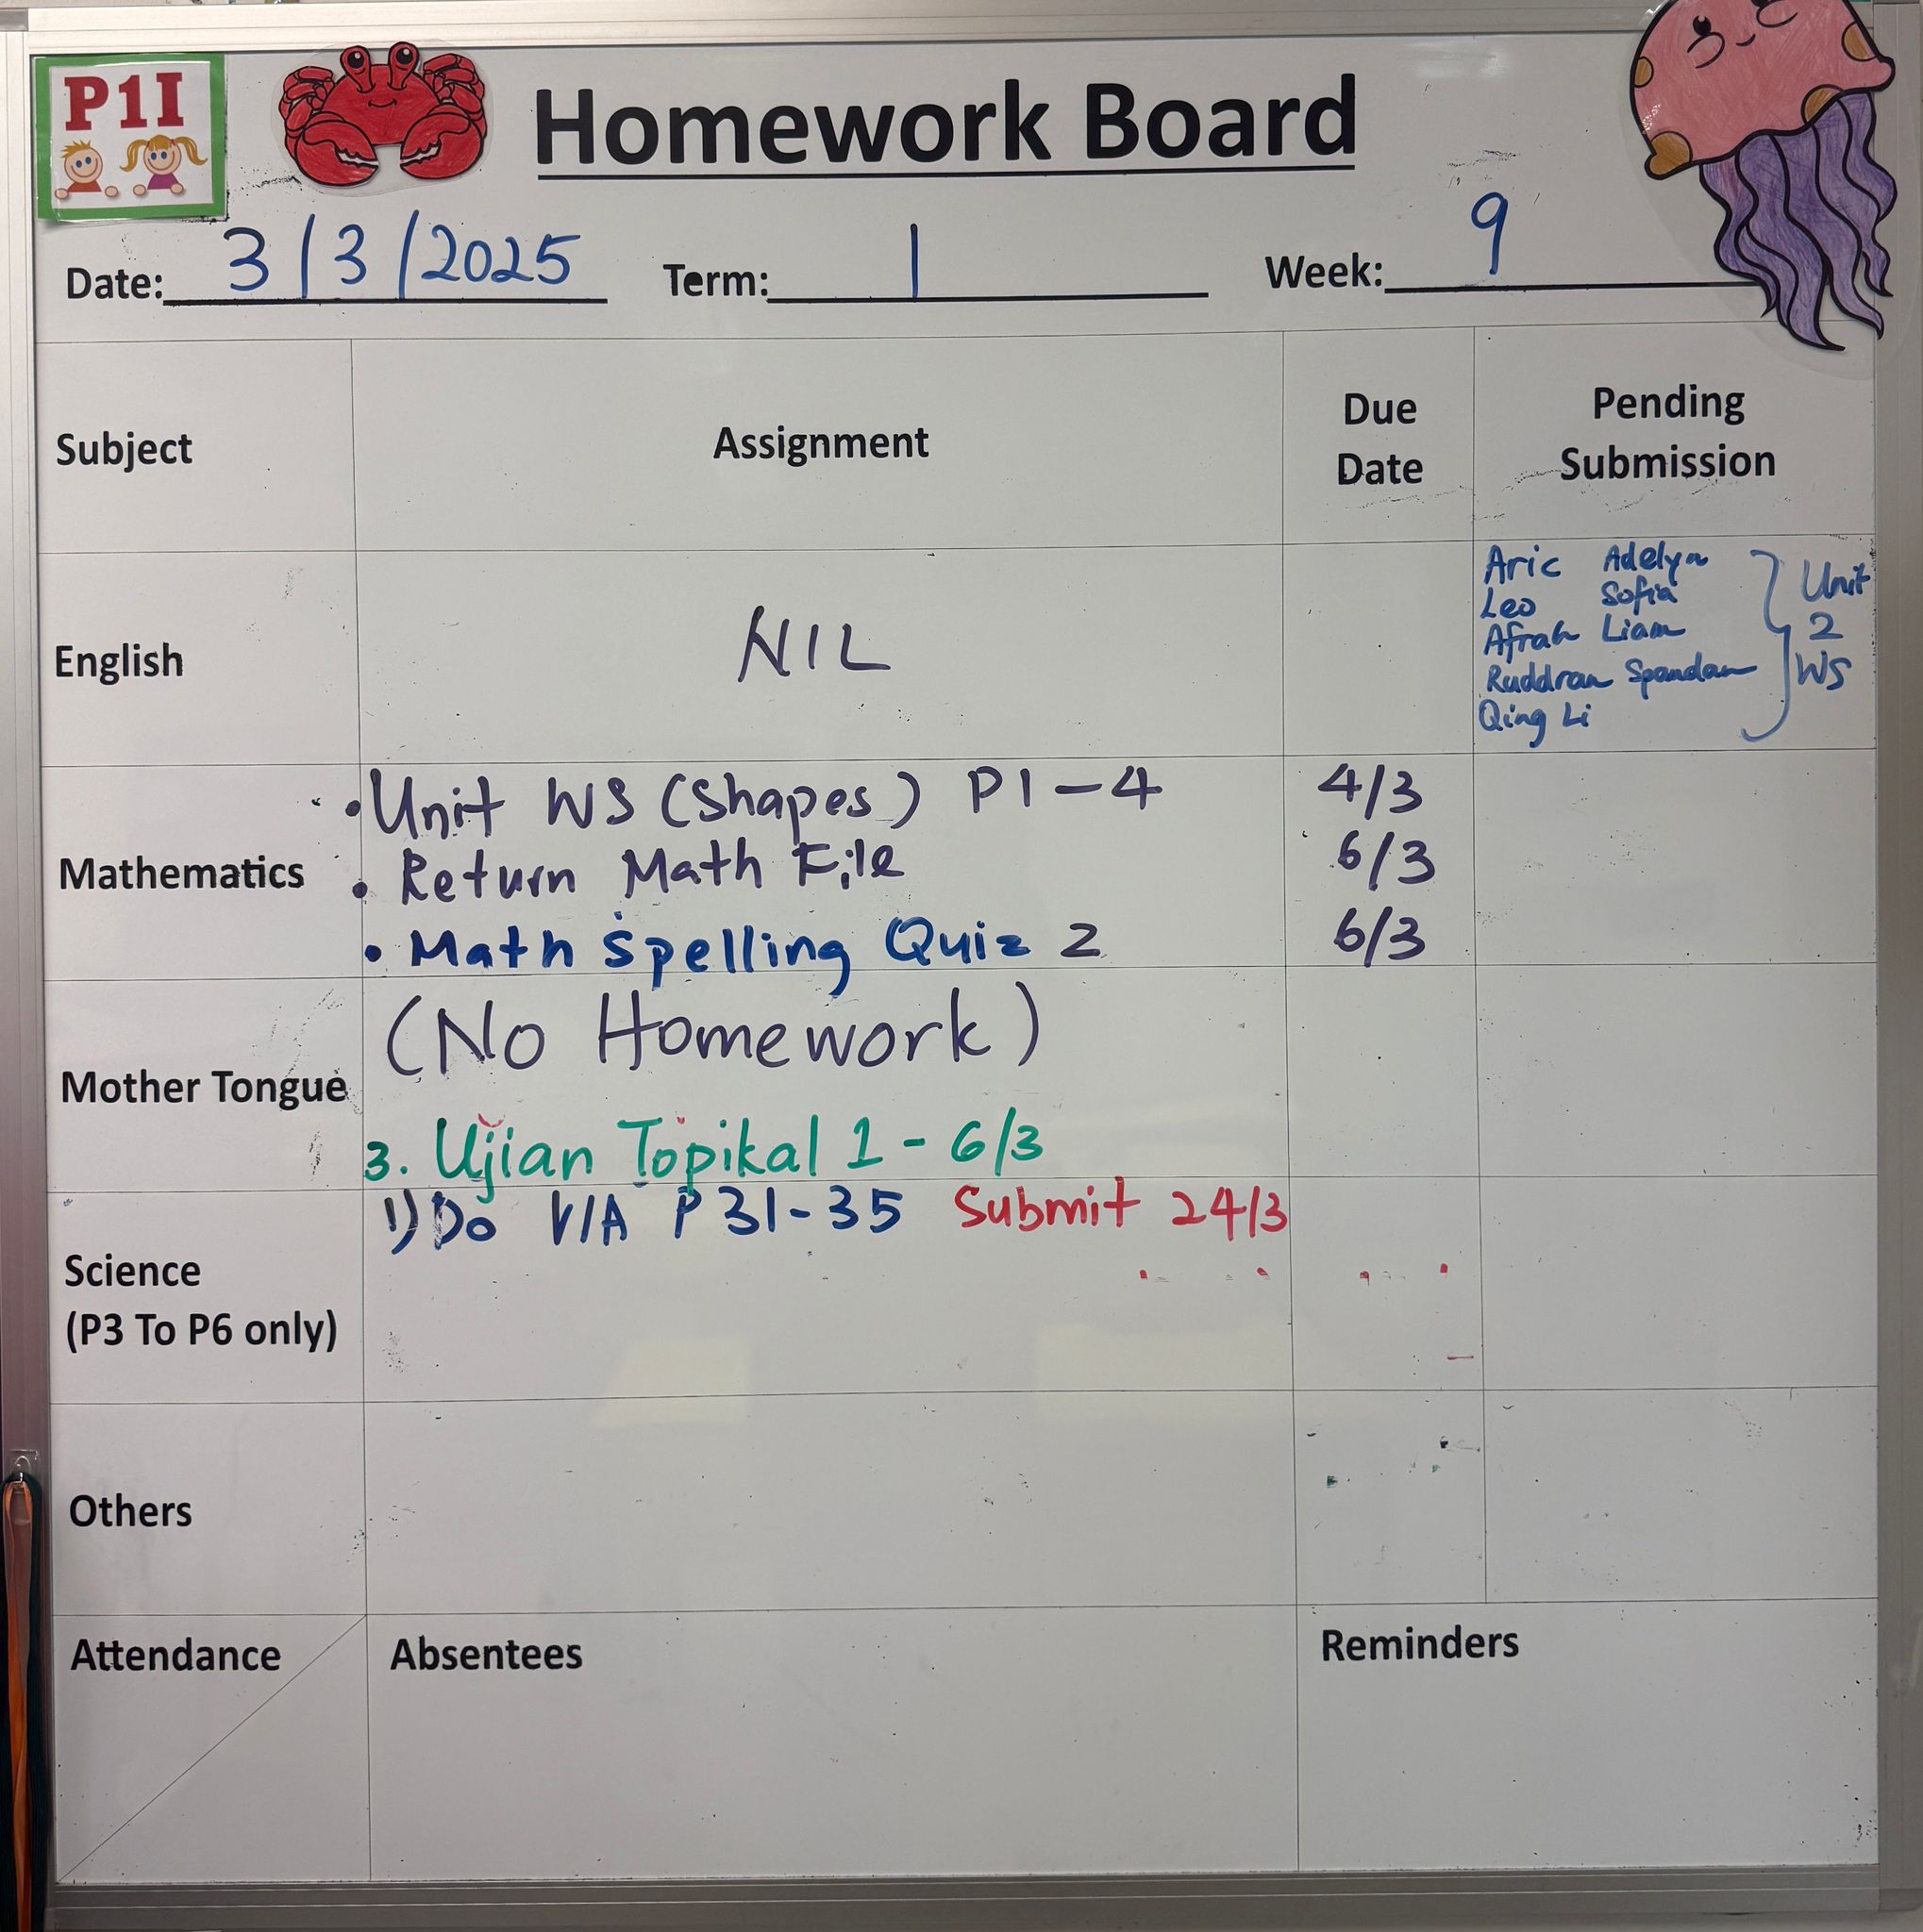 P1I
Homework Board
Date: 3/3/2025 Term: 1 Week: 9
Subject Assignment Due Date Pending Submission
English NIL
Aric Adelyn
Leo Sofia
Afrah Liam
Ruddran Spandan
Qing Li
Unit
2
WS
Mathematics
• Unit WS (Shapes) P1-4 4/3
• Return Math File 6/3
• Math Spelling Quiz 2 6/3
Mother Tongue
(No Homework)
3. Ujian Topikal 1 - 6/3
Science
(P3 To P6 only)
1) Do V/A P31-35 Submit 24/3
Others
Attendance Absentees Reminders